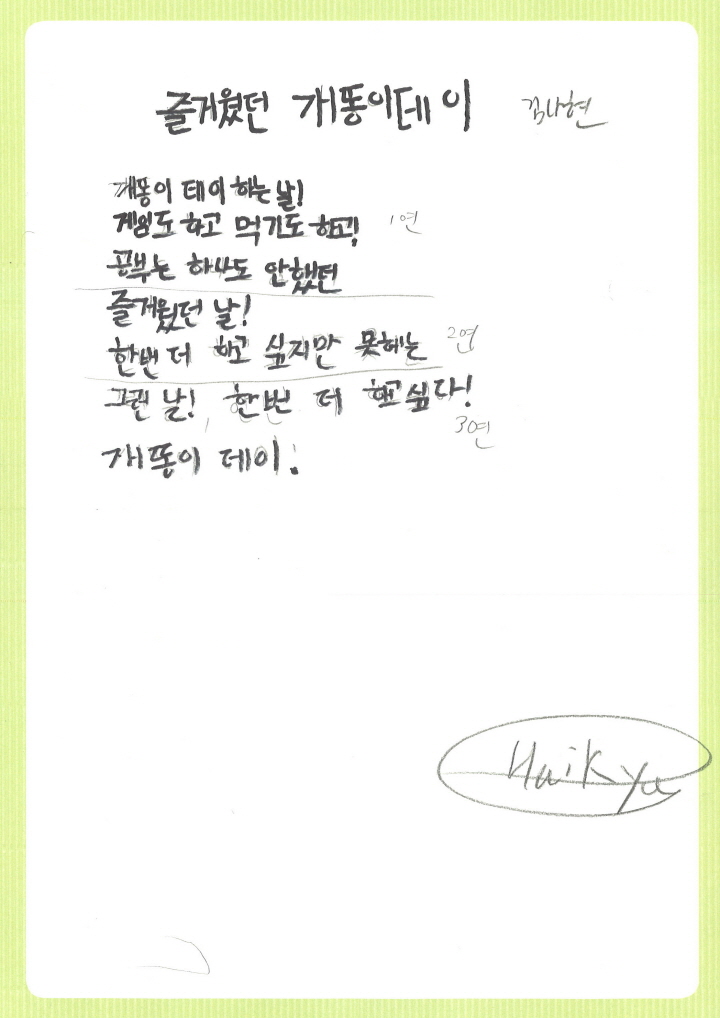 즐거웠던 개똥이데이 김나현
개똥이 데이 하는 날!
게임도 하고 먹기도 하고! 1연
공부는 하나도 안했던
즐거웠던 날!
한번 더 하고 싶지만 못하는 2연
그런 날! 한번 더 하고싶다!
3연
개똥이 데이.
Haikyu